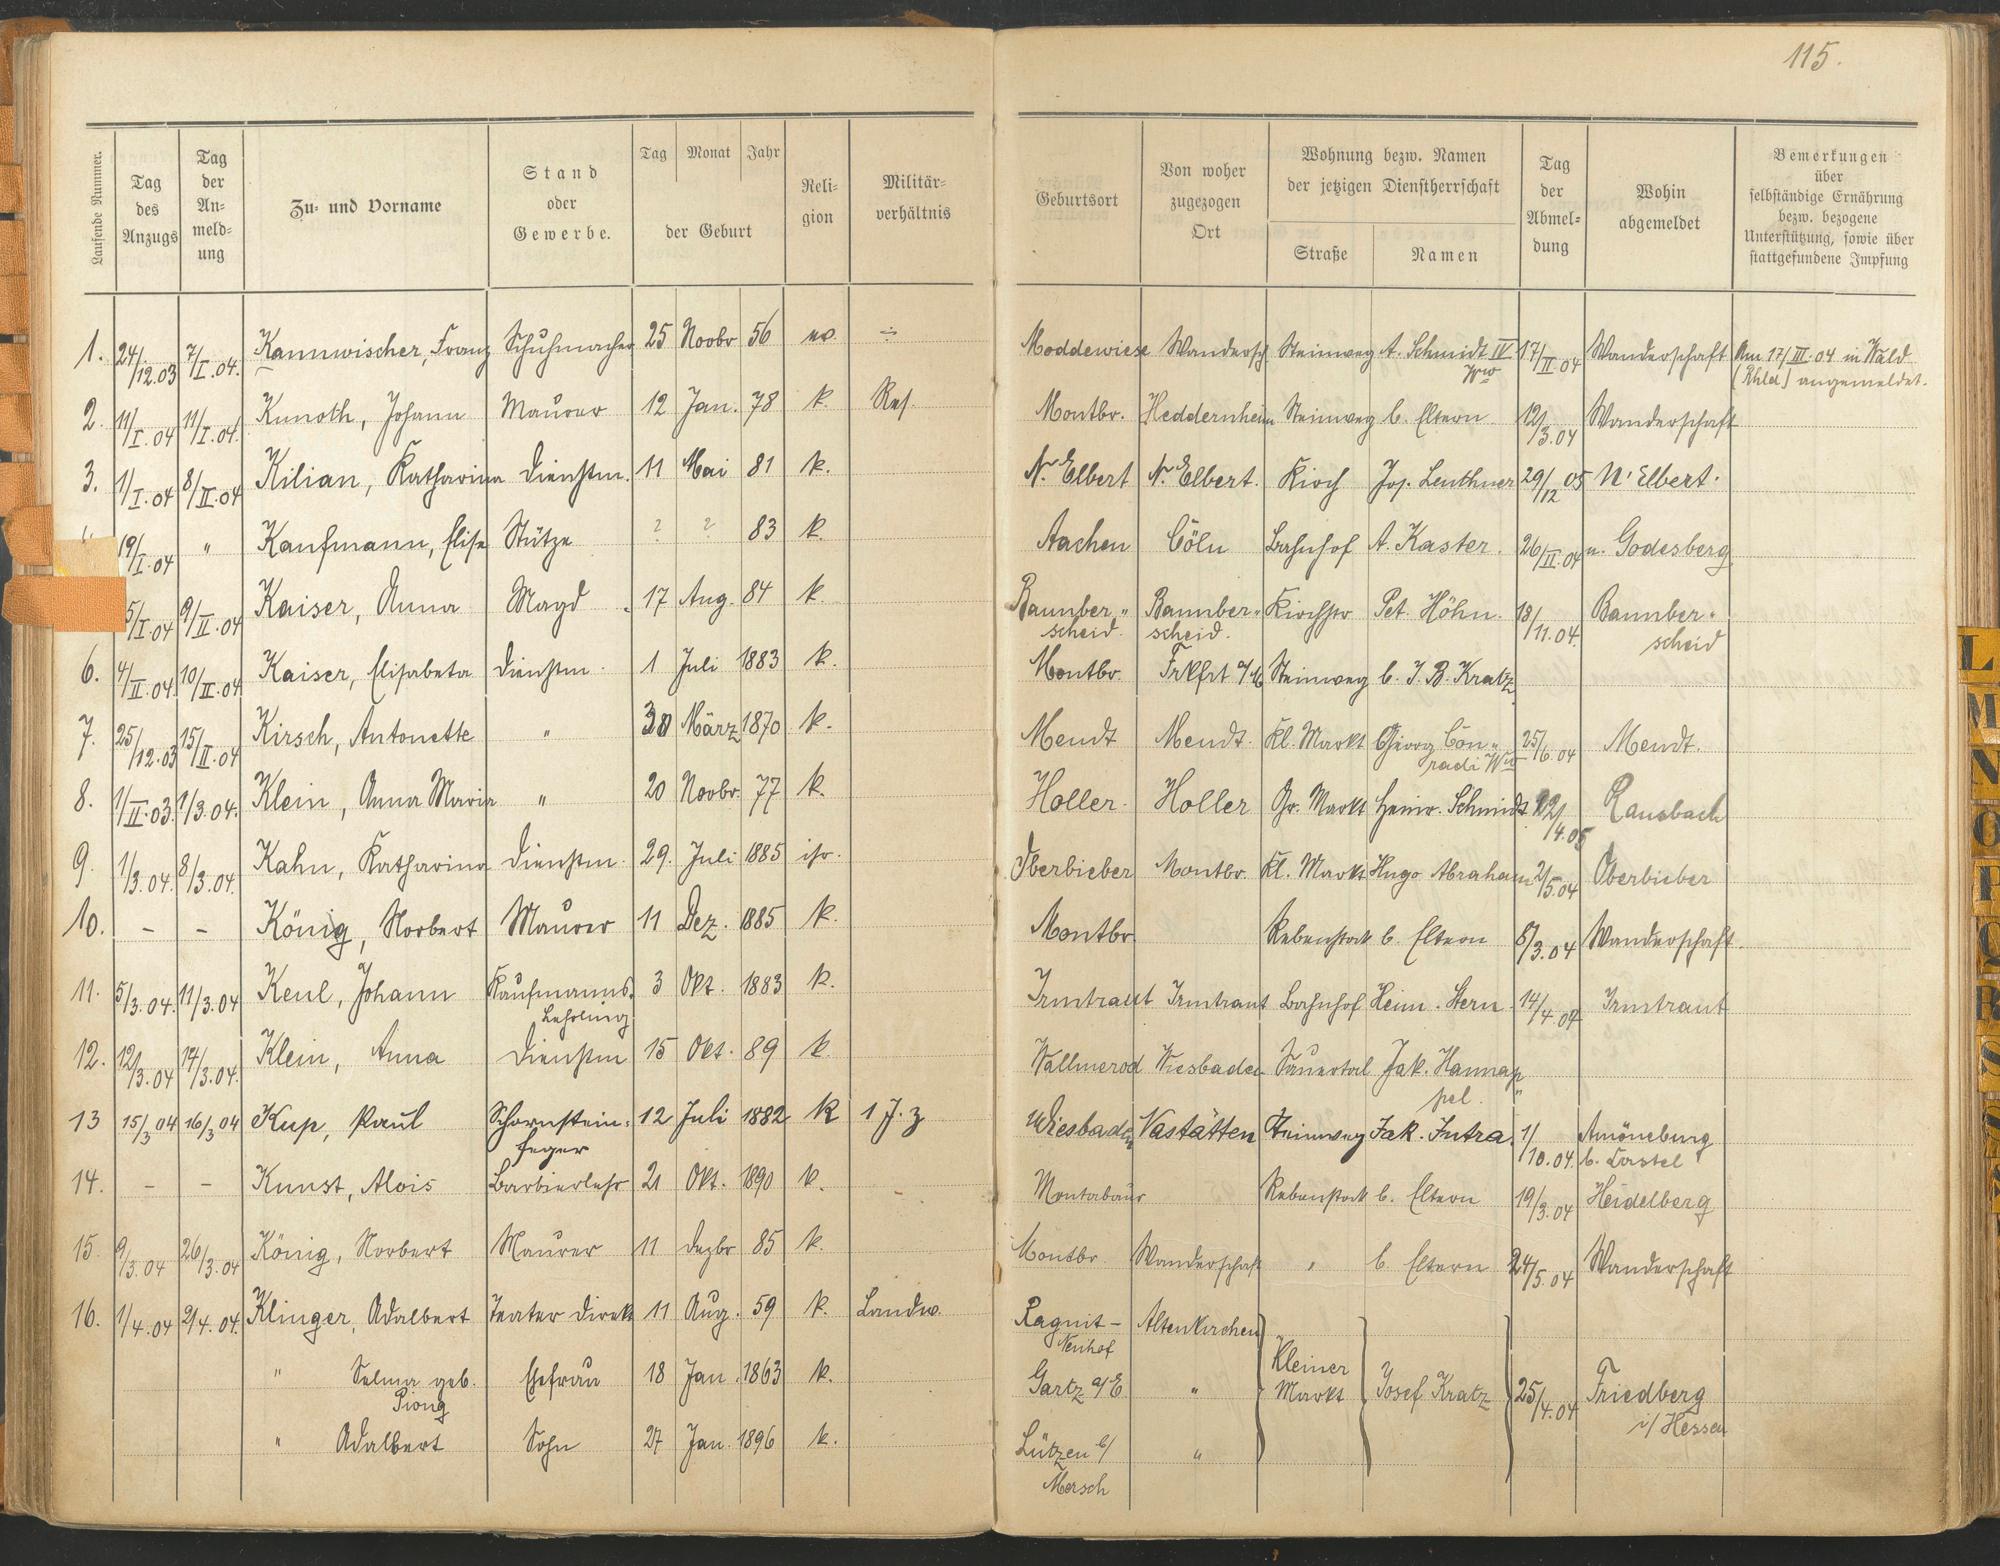 115.
Laufende Nummer.
Tag des Anzugs
Tag der An- meld- ung
Zu- und Vorname
Stand oder Gewerbe.
Tag Monat Jahr
der Geburt
Reli- gion
Militär- verhältnis
Geburtsort
Von woher zugezogen Ort
Wohnung bezw. Namen der jetzigen Dienstherrschaft
Straße Namen
Tag der Abmel- dung
Wohin abgemeldet
Bemerkungen über selbständige Ernährung bezw. bezogene Unterstützung, sowie über stattgefundene Impfung
1. 24/12.03 7/I.04. Kannwischer, Franz Schuhmacher 25 Novbr 56 ev ÷ Moddewiese Wandersch Steinweg A. Schmidt IV Ww 17/II.04 Wanderschaft Am 17/III.04 in Wald
(Rhld) angemeldet.
2. 11/I.04 11/I.04. Kunoth, Johann Maurer 12 Jan. 78 k. Res. Montbr. Heddernheim Steinweg b. Eltern 12/3.04 Wanderschaft
3. 1/I.04 8/II.04 Kilian, Katharina Dienstm. 11 Mai 81 k. N. Elbert N. Elbert. Kirch Jos. Leuthner 29/12 05 N. Elbert.
19/I.04 " Kaufmann, Elise Stütze ? ? 83 k. Aachen Cöln Bahnhof A. Kaster. 26/II.04 n. Godesberg
5/I.04 9/II.04 Kaiser, Anna Magd 17 Aug. 84 k. Bannber" Bannber" Kirchstr Pet. Höhn. 18/11.04. Bannber"
scheid. scheid. scheid
6. 4/II.04. 10/II.04 Kaiser, Elisabeta Dienstm. 1 Juli 1883 k. Montbr. Frkfrt a/M Steinweg b. J. B. Kratz
7. 25/12.03 15/II.04 Kirsch, Antonette " 30 März 1870 k. Mendt Mendt. Kl. Markt Georg Con"
radi Ww 25/6.04 Mendt.
8. 1/II.03. 1/3.04. Klein, Anna Maria " 20 Novbr. 77 k. Holler. Holler Gr. Markt Heinr. Schmidt 12/4.05 Ransbach
9. 1/3.04. 8/3.04. Kahn, Katharina Dienstm. 29. Juli 1885 isr. Oberbieber Montbr. Kl. Markt Hugo Abraham 2/5.04 Oberbieber
10. - - König, Norbert Maurer 11 Dez. 1885 k. Montbr. Rebenstock b. Eltern 8/3.04 Wanderschaft.
11. 5/3.04. 11/3.04 Keul, Johann Kaufmanns. 3 Okt. 1883 k. Irmtraut Irmtraut Bahnhof Heinr. Stern. 14/4.04 Irmtraut
Lehrling
12. 12/3.04 14/3.04. Klein, Anna Dienstm 15 Okt. 89 k. Wallmerod Wiesbaden Sauertal Jak. Hannap"
pel.
13 15/3 04 16/3 04 Kup, Paul Schornstein- 12 Juli 1882 K 1 J. z Wiesbaden Nastätten Steinweg Jak. Intra. 1/10.04. Amöneburg
feger b. Castel
14. - - Kunst, Alois Barbierlehr 21 Okt. 1890 k. Montabaur Rebenstock b. Eltern 19/3.04 Heidelberg
15. 9/3.04 26/3.04 König, Norbert Maurer 11 Dezbr 85 k. Montbr Wanderschaft " b. Eltern 24/5.04 Wanderschaft
16. 1/4.04 2/4.04. Klinger, Adalbert Teater Direkt 11 Aug. 59 k. Landw. Ragnit- Altenkirchen
Neuhof
" Selma geb. Ehefrau 18 Jan. 1863 k. Gartz a/E " Kleiner Markt Josef Kratz 25/4.04 Friedberg
Piong i/Hessen
" Adalbert Sohn 27 Jan. 1896 k. Lützen b/ "
Mersch
L M N O P Q R S